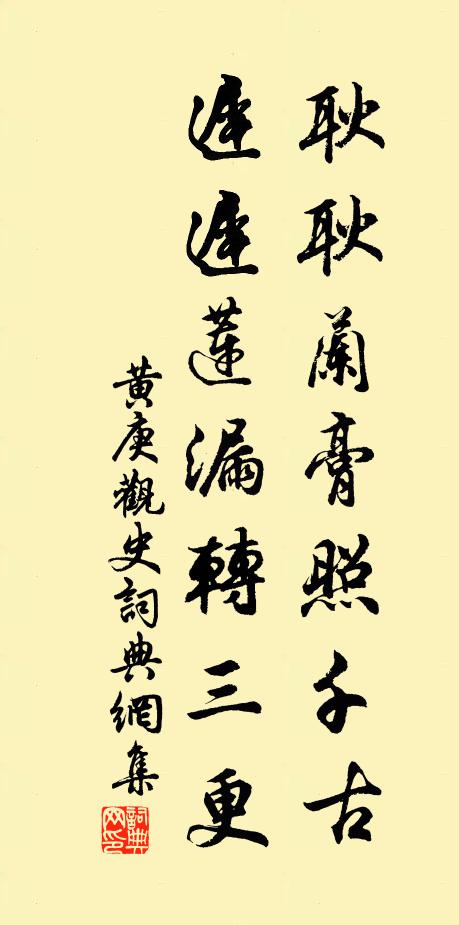 耿耿蘭膏照千古
遲遲蓮漏轉三更
黃庚觀史詞典網集
詞典網印